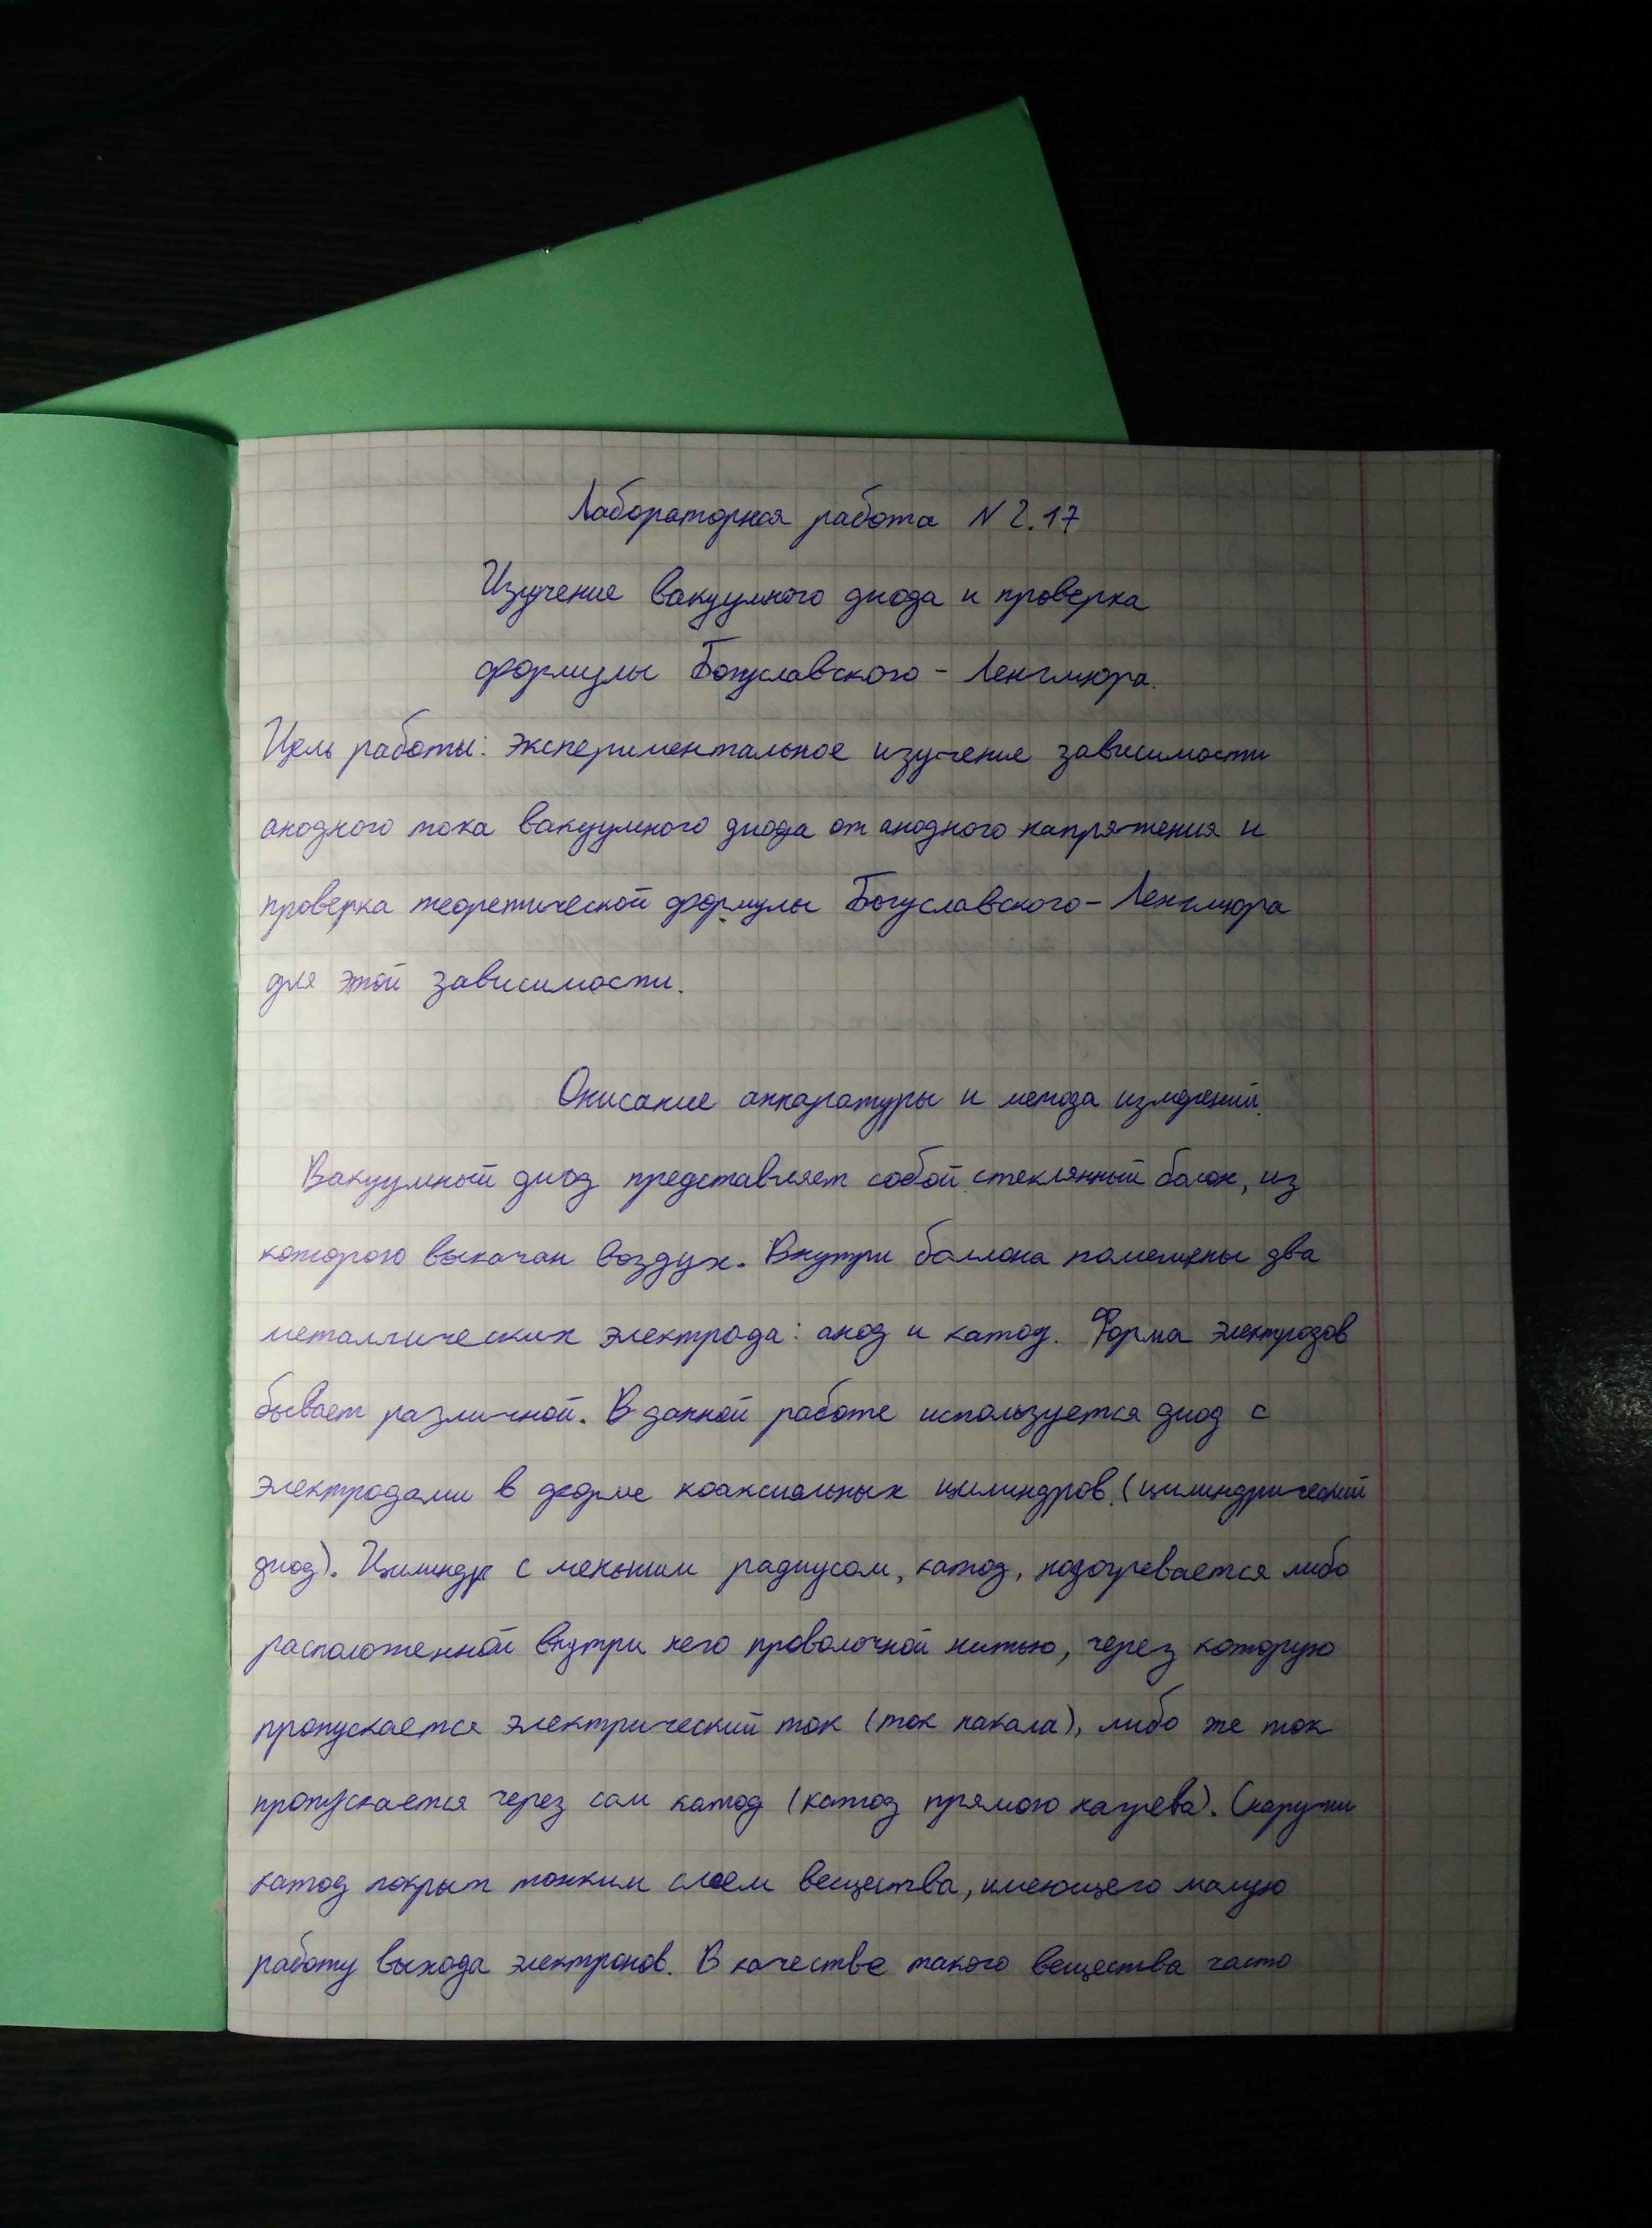 Лабораторная работа N 2.17
Изучение вакуумного диода и проверка
формулы Богуславского - Ленгмюра.
Цель работы: экспериментальное изучение зависимости
анодного тока вакуумного диода от анодного напряжения и
проверка теоретической формулы Богуславского - Ленгмюра
для этой зависимости.
Описание аппаратуры и метода измерений.
Вакуумный диод представляет собой стеклянный балон, из
которого выкачан воздух. Внутри баллона помещены два
металлических электрода: анод и катод. Форма электродов
бывает различной. В данной работе используется диод с
электродами в форме коаксиальных цилиндров (цилиндрический
диод). Цилиндр с меньшим радиусом, катод, подогревается либо
расположенной внутри него проволочной нитью, через которую
пропускается электрический ток (ток накала), либо же ток
пропускается через сам катод (катод прямого нагрева). Снаружи
катод покрыт тонким слоем вещества, имеющего малую
работу выхода электронов. В качестве такого вещества часто